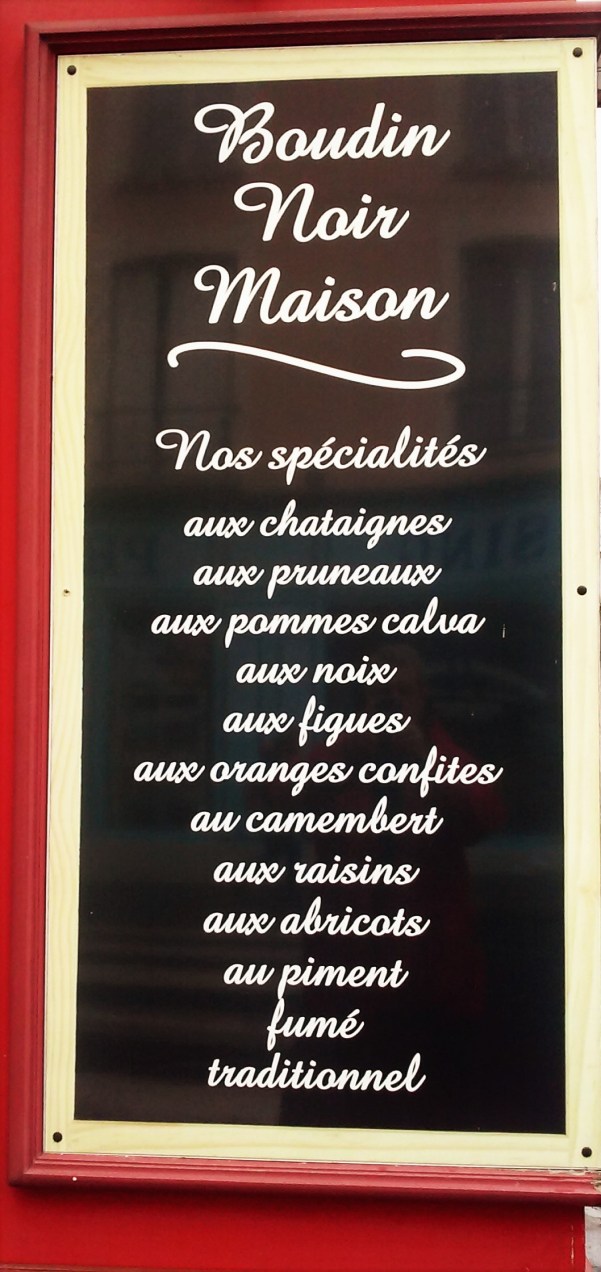 Boudin
Noir
Maison
Nos spécialités
aux chataignes
aux pruneaux
aux pommes calva
aux noix
aux figues
aux oranges confites
au camembert
aux raisins
aux abricots
au piment
fumé
traditionnel